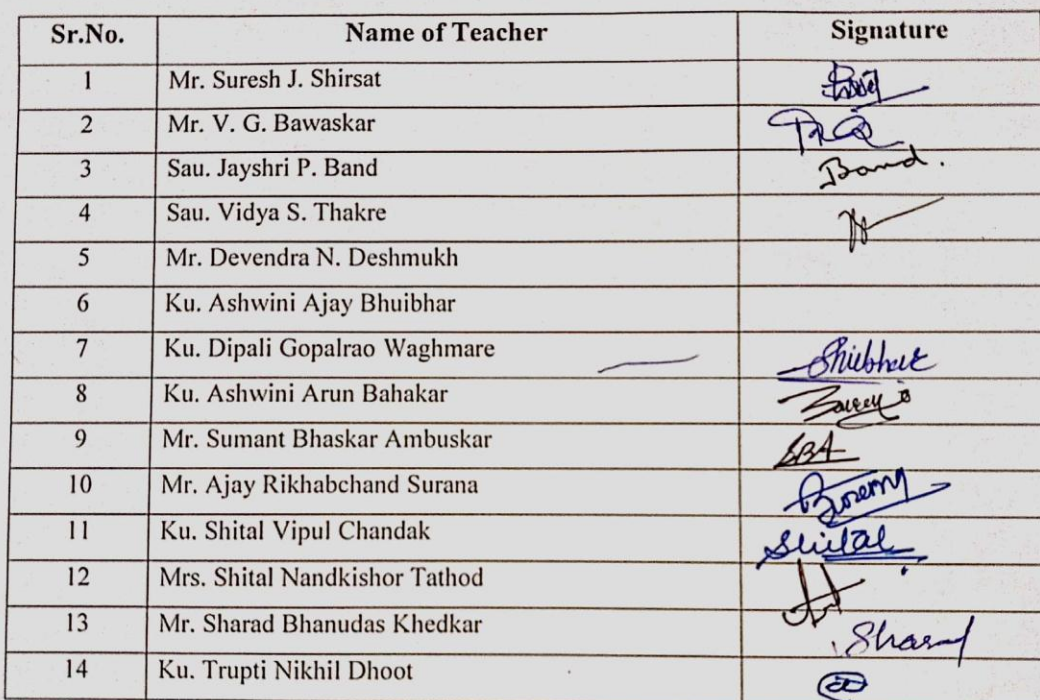 Sr.No. Name of Teacher Signature
1 Mr. Suresh J. Shirsat
2 Mr. V. G. Bawaskar
3 Sau. Jayshri P. Band Band.
4 Sau. Vidya S. Thakre
5 Mr. Devendra N. Deshmukh
6 Ku. Ashwini Ajay Bhuibhar
7 Ku. Dipali Gopalrao Waghmare
8 Ku. Ashwini Arun Bahakar
9 Mr. Sumant Bhaskar Ambuskar SBA
10 Mr. Ajay Rikhabchand Surana
11 Ku. Shital Vipul Chandak Shital
12 Mrs. Shital Nandkishor Tathod
13 Mr. Sharad Bhanudas Khedkar
14 Ku. Trupti Nikhil Dhoot